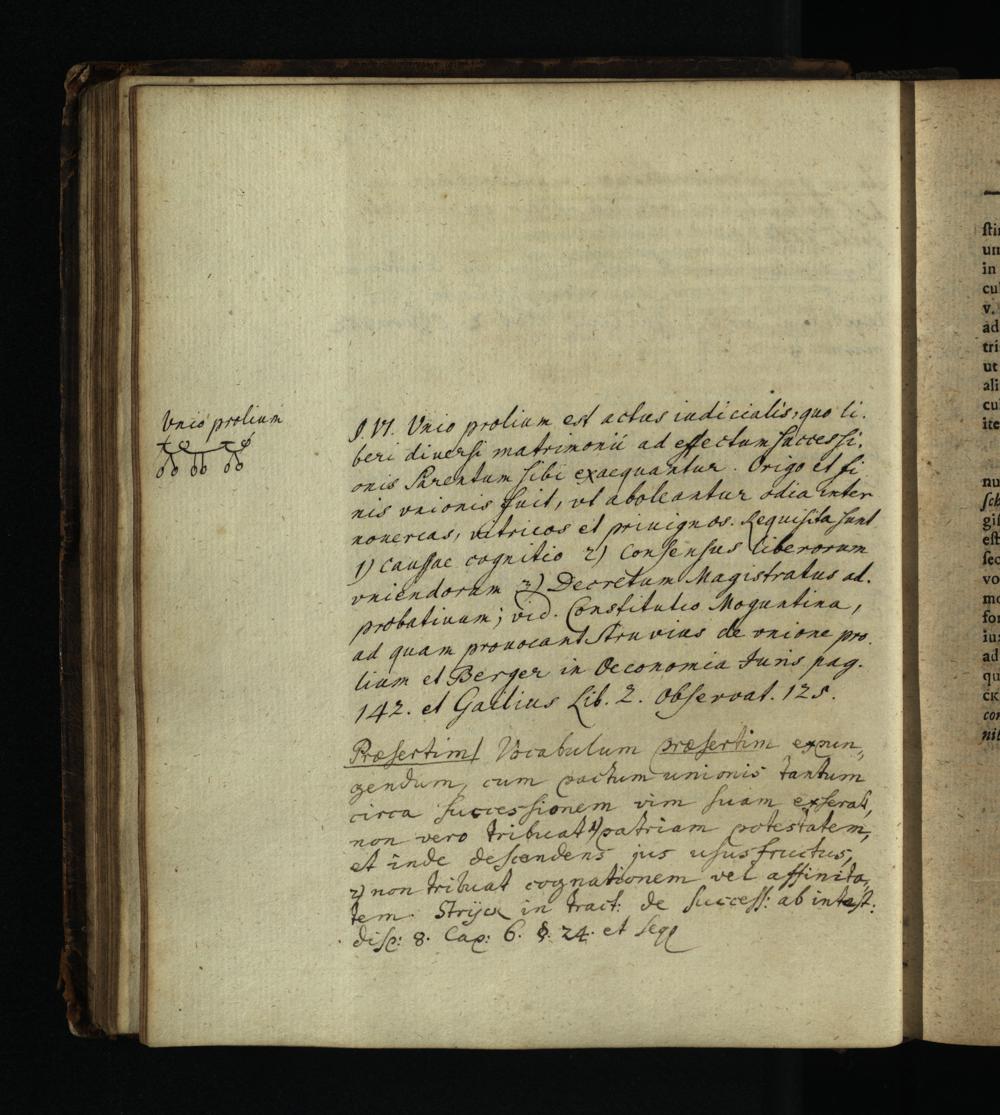 Vnio prolium
§. VI. Vnio prolium est actus iudicialis, quo li-
beri diversi matrimonii ad effectum successi-
onis Parentum sibi exaequantur. Origo et fi-
nis vnionis fuit, vt aboleantur odia inter
novercas, vitricos et privignos. Requisita sunt
1) Caussae cognitio 2) Consensus liberorum
vniendorum 3) Decretum Magistratus ad-
probativum; vid. Constitutio Moguntina,
ad quam provocant Struvius de vnione pro-
lium et Berger in Oeconomia Iuris pag.
142. et Gailius Lib. 2. Observat. 125.
Præsertim/ Vocabulum præsertim expun-
gendum, cum pactum unionis tantum
circa successionem vim suam exserat,
non vero tribuat 1) patriam potestatem,
et inde descendens jus ususfructus,
2) non tribuat cognationem vel affinita-
tem. Stryck in tract: de Success: ab intest:
disp: 8. Cap: 6. §. 24. et seqq
sti
un
in
cu
v.
ad
tri
ut
ali
cu
ite
nu
sch
gis
est
sec
vo
mo
for
iu
ad
qu
CK
con
nil